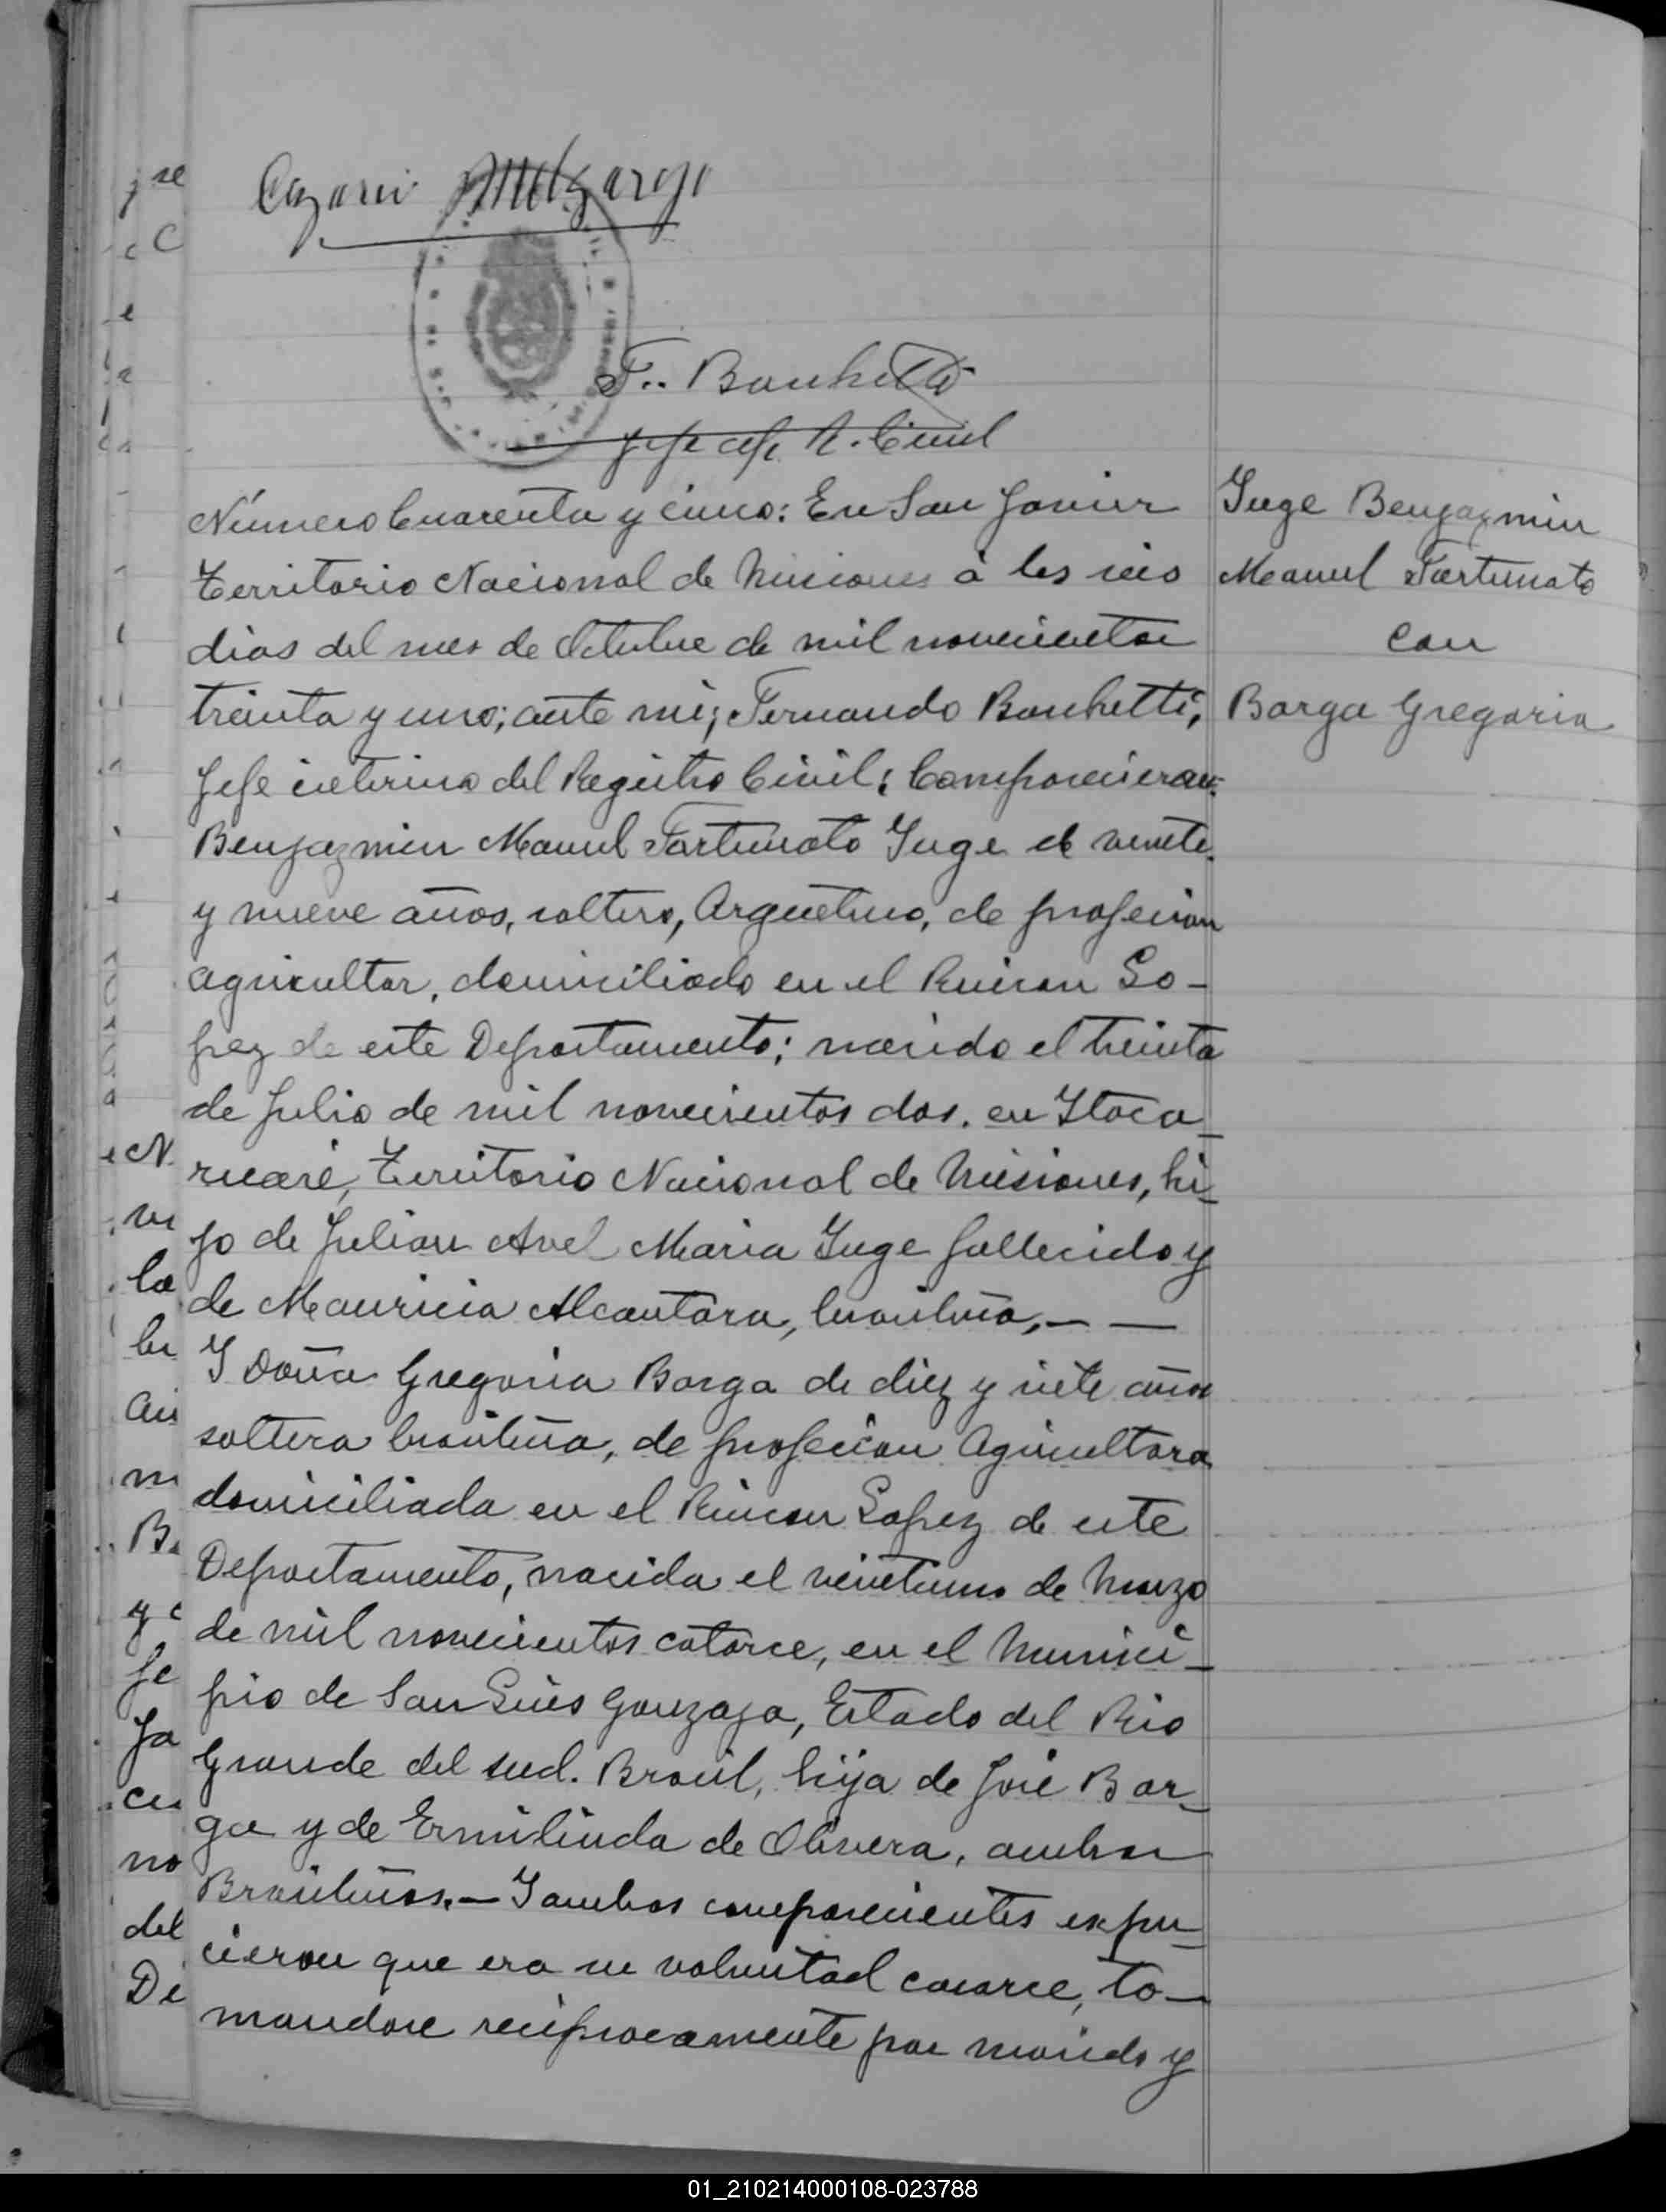 F.. Bonhetti
Jefe del R. Civil
Número Cuarenta y cinco: En San Javier
Territorio Nacional de Misiones á los seis
dias del mes de Octubre de mil novecientos
treinta y uno; ante mi; Fernando Bonhetti,
Jefe interino del Registro Civil; Comparecieron:
Benjazmin Manuel Fortunato Juge de veinte
y nueve años, soltero, Argentino, de profesion
agricultor, domiciliado en el Rincon Lo-
pez de este Departamento; nacido el treinta
de Julio de mil novecientos dos, en Itaca-
ruaré, Territorio Nacional de Misiones, hi-
jo de Julian Avel Maria Juge fallecido y
de Mauricia Alcantara, brasileña,— —
Y Doña Gregoria Borga de diez y siete años
soltera brasileña, de profesion Agricultora
domiciliada en el Rincon Lopez de este
Departamento, nacida el veintiuno de Marzo
de mil novecientos catorce, en el Munici-
pio de San Luis Gonzaga, Estado del Rio
Grande del sud. Brasil, hija de José Bor-
ga y de Ermilinda de Olivera, ambos
Brasileños.— Y ambos comparecientes expu-
cieron que era su voluntad casarce, to-
mandose reciprocamente por marido y
Juge Benjazmin
Manuel Fortunato
con
Borga Gregoria
01_210214000108-023788